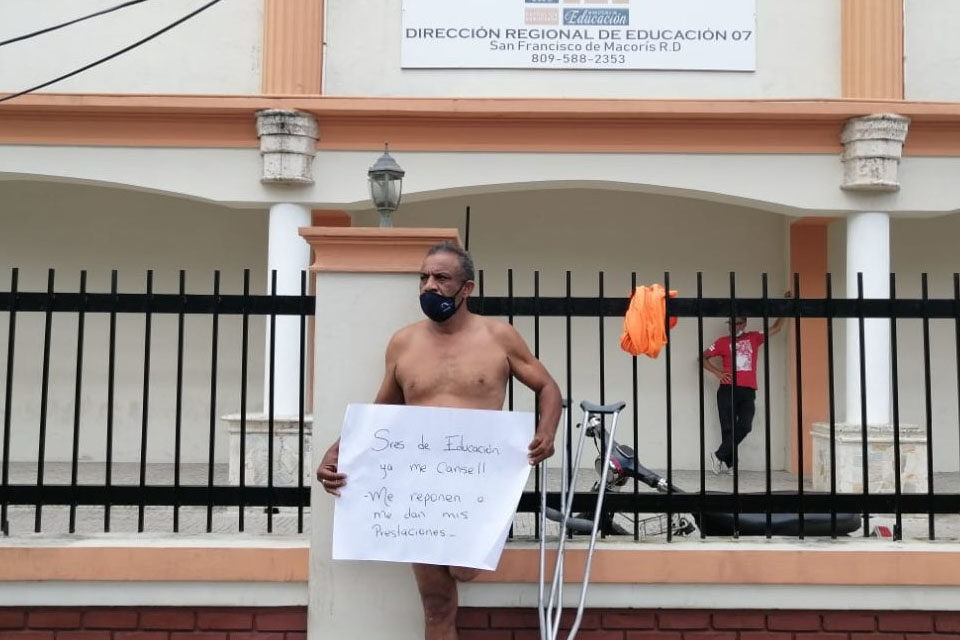 Educación
DIRECCIÓN REGIONAL DE EDUCACIÓN 07
San Francisco de Macorís R.D
809-588-2353
Sres de Educación
ya me Cansell
-Me reponen o
me dan mis
Prestaciones-